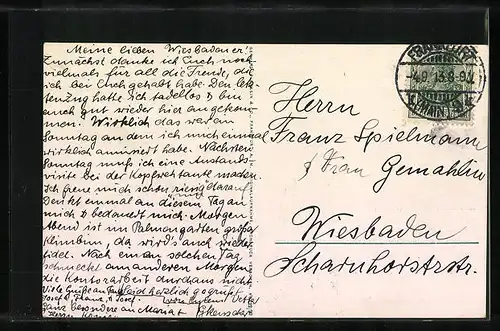 Meine lieben Wiesbadener!
Zunächst danke ich Euch noch
vielmals für all die Freude, die
ich bei Euch gehabt habe. Den
hatte ich tadellos & bin
auch gut wieder hier angekom-
men. Wirklich das war ein
Sonntag an dem ich mich einmal
wirklich amüsiert habe. Nächsten
Sonntag muß ich eine Anstands-
visite bei der tante machen.
Ich freue mich schon riesig darauf.
Denkt einmal an diesem Tag an
mich & bedauert mich. Morgen
Abend ist im Palmengarten große
Klimbim, da wird's auch wieder
fidel. Nach einem solchen Tag
schmeckt am anderen Morgen
die Kontorarbeit durchaus nicht.
Viele Grüße an herzlich gegrüßt
von Eurem Vetter
ganz besonders an
FRANKFURT
-4.9.13.8-9N.
(MAIN)
Herrn
Franz Spielmann
& Frau Gemahlin
Wiesbaden
Scharnhorststr.